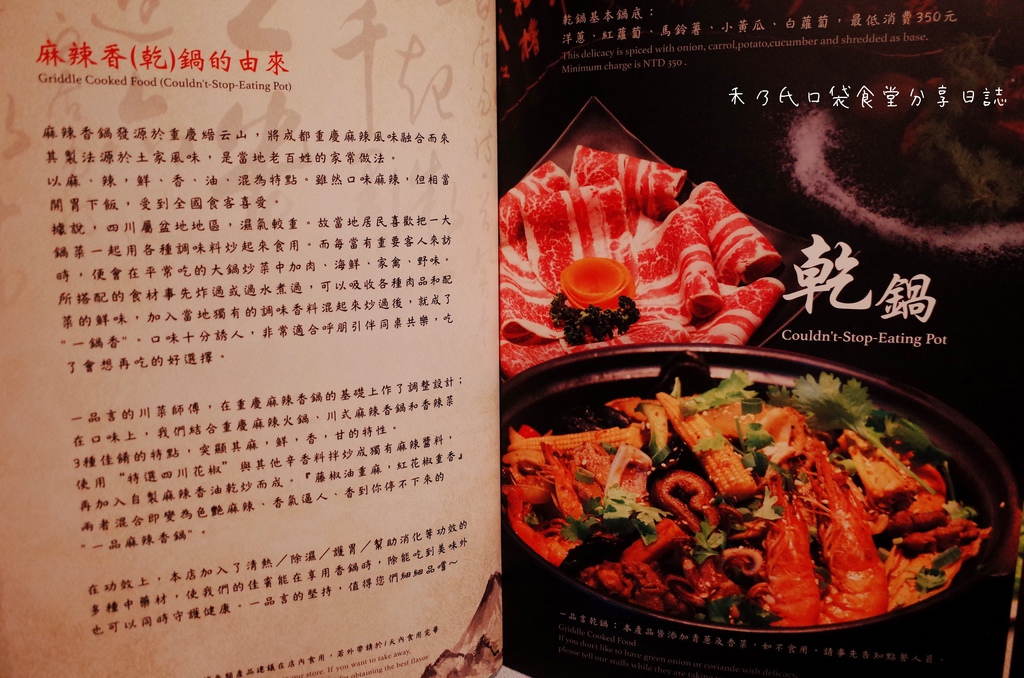 麻辣香(乾)鍋的由來
Griddle Cooked Food (Couldn't-Stop-Eating Pot)
麻辣香鍋發源於重慶縉云山，將成都重慶麻辣風味融合而來
其製法源於土家風味，是當地老百姓的家常做法。
以麻、辣，鮮、香、油、混為特點。雖然口味麻辣，但相當
開胃下飯，受到全國食客喜受。
據說，四川屬盆地地區，濕氣較重。故當地居民喜歡把一大
鍋菜一起用各種調味料炒起來食用。而每當有重要客人來訪
時，便會在平常吃的大鍋炒菜中加肉、海鮮、家禽、野味，
所搭配的食材事先炸過或過水煮過，可以吸收各種肉品和配
菜的鮮味，加入當地獨有的調味香料混起來炒過後，就成了
"一鍋香"。口味十分誘人，非常適合呼朋引伴同桌共樂，吃
了會想再吃的好選擇。
一品言的川菜師傅，在重慶麻辣香鍋的基礎上作了調整設計；
在口味上，我們結合重慶麻辣火鍋、川式麻辣香鍋和香辣菜
3種佳餚的特點，突顯其麻，鮮，香，甘的特性。
使用 "特選四川花椒" 與其他辛香料拌炒成獨有麻辣醬料，
再加入自製麻辣香油乾炒而成。『藤椒油重麻，紅花椒重香』
兩者混合即變為色艷麻辣、香氣逼人、香到你停不下來的
"一品麻辣香鍋"。
在功效上，本店加入了清熱／除濕／護胃／幫助消化等功效的
多種中藥材，使我們的佳賓能在享用香鍋時，除能吃到美味外
也可以同時守護健康。一品言的堅持，值得您們細細品嚐～
類產品建議在店內食用，若外帶請於1天內食用完畢
our store. If you want to take away,
for obtaining the best flavor
乾鍋基本鍋底：
洋蔥、紅蘿蔔、馬鈴薯、小黃瓜、白蘿蔔，最低消費350元
This delicacy is spiced with onion, carrol,potato,cucumber and shredded as base.
Minimum charge is NTD 350 .
禾乃氏口袋食堂分享日誌
乾鍋
Couldn't-Stop-Eating Pot
一品言乾鍋：本產品皆添加青蔥及香菜，如不食用，請事先告知點餐人員。
Griddle Cooked Food
If you don't like to have green onions or coriande with delicacy
please tell our staffs while they are taking